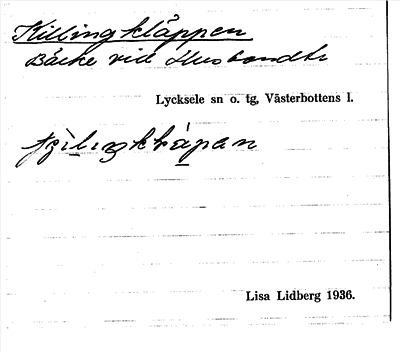 Killingkläppen
Backe vid Husbondtr
Lycksele sn o. tg, Västerbottens l.
Lisa Lidberg 1936.